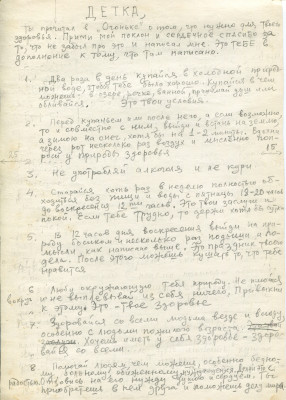 ДЕТКА,
Ты прочитал в "Огоньке" о том, что нужно для Твоего
здоровья. Прими мой поклон и сердечное спасибо за
то, что не забыл про это и написал мне. Это ТЕБЕ в
дополнение к тому, что Там написано.
1. Два раза в день купайся в холодной природ-
ной воде, чтобы тебе было хорошо. Купайся в чем
можешь: в озере, речке, ванной, принимай душ или
обливайся. Это твои условия.
2. Перед купаньем или после него, а если возможно,
то и совместно с ним, выйди и встань на землю,
а зимою на снег, хотя бы на 1-2 минуты. Вдохни
через рот несколько раз воздух и мысленно попро-
си у природы здоровья
3. Не употребляй алкоголя и не кури
4. Старайся хоть раз в неделю полностью об-
ходиться без пищи и воды с пятницы 18-20 часов
до воскресенья 12ти часов. Это твои заслуги и
покой. Если тебе трудно, то держи хотя бы сутки
5. В 12 часов дня воскресенья выйди на при-
роду босиком и несколько раз подыши и по-
мысли как написано выше. Это праздник твоего
дела. После этого можешь кушать то, что тебе
нравится
6. Люби окружающую тебя природу. Не плюйся
вокруг и не выплевывай из себя ничего. Привыкни
к этому. Это - Твое Здоровье.
7. Здоровайся со всеми людьми везде и всюду
особенно с людьми пожилого возраста.
Хочешь иметь у себя здоровье - здоро-
вайся со всеми.
8. Помогай людям чем можешь, особенно бедно-
му, больному, обиженному, нуждающемуся.